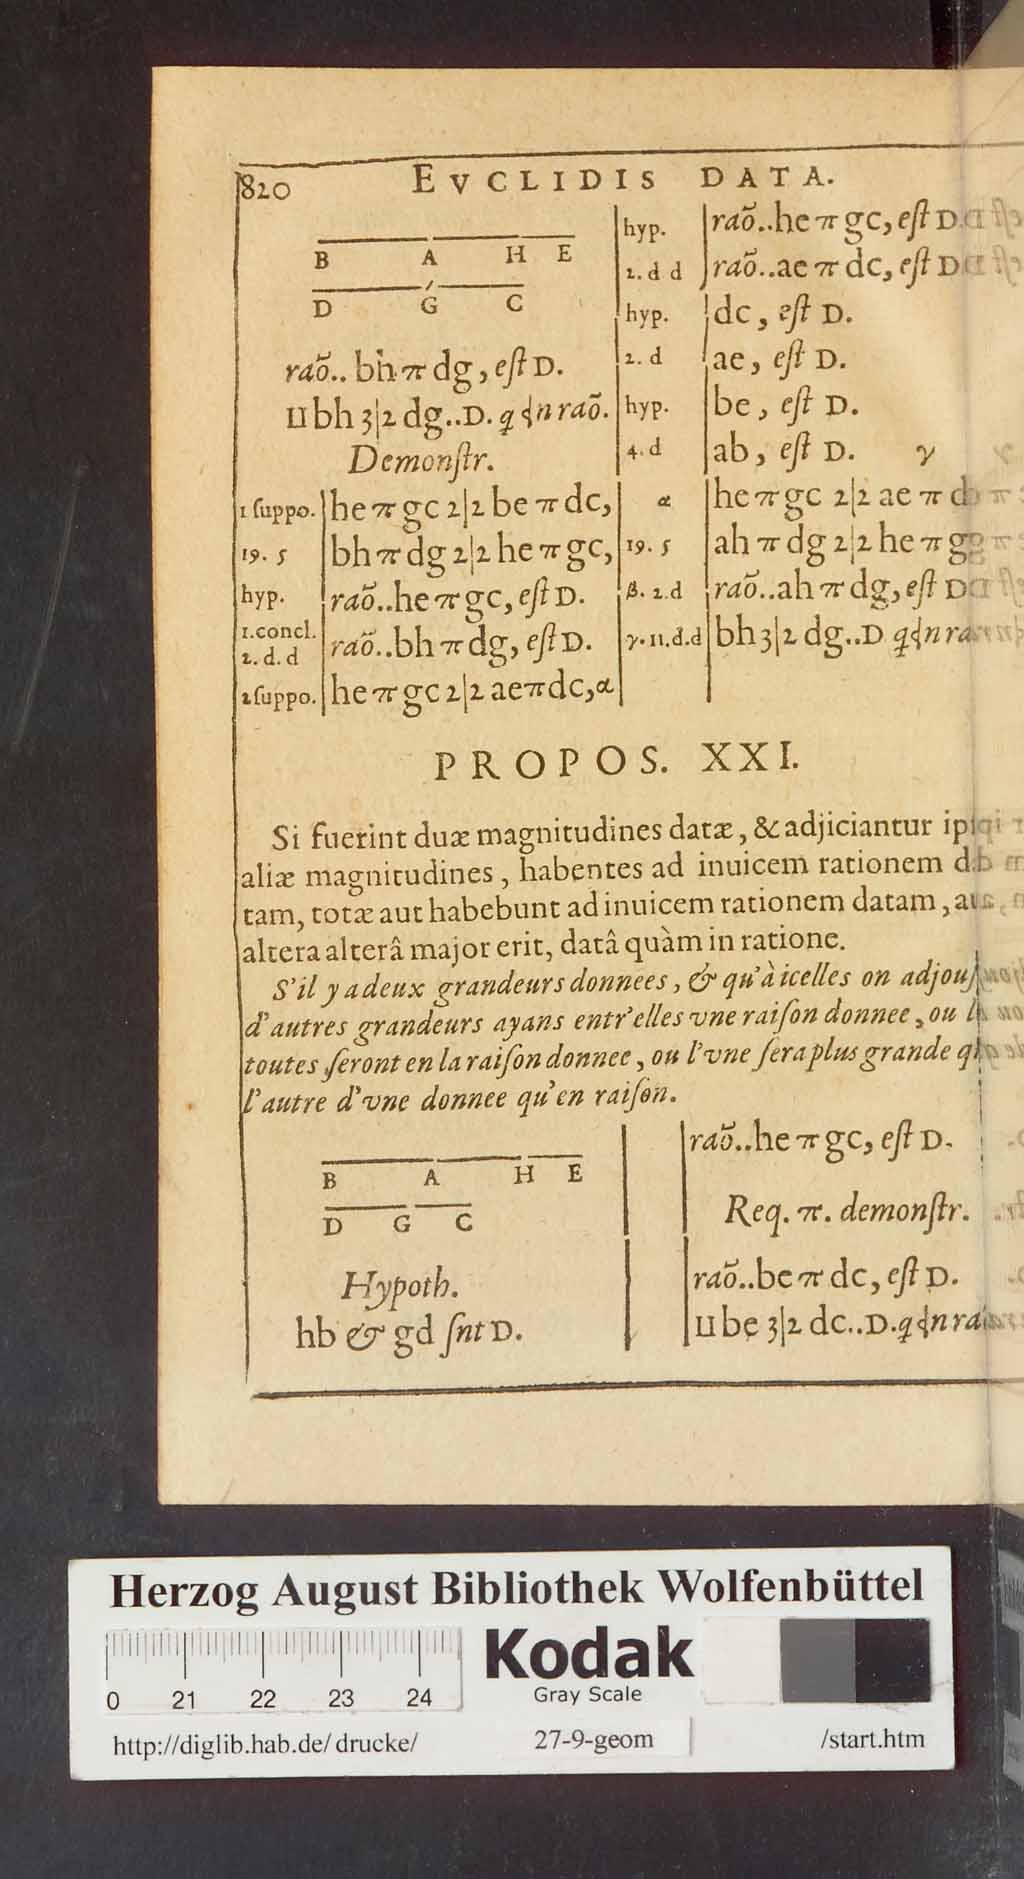 820 EVCLIDIS DATA.
B A H E
D G C
raõ.. bh π dg, est D.
⊔ bh 3|2 dg..D. q ⟨n raõ.
Demonstr.
1 suppo. he π gc 2|2 be π dc,
19. 5 bh π dg 2|2 he π gc,
hyp. raõ..he π gc, est D.
1.concl.
2. d. d raõ..bh π dg, est D.
2 suppo. he π gc 2|2 ae π dc, α
hyp. raõ..he π gc, est D.
2. d d raõ..ae π dc, est D
hyp. dc, est D.
2. d ae, est D.
hyp. be, est D.
4. d ab, est D. γ
α he π gc 2|2 ae π
19. 5 ah π dg 2|2 he π
β. 2.d raõ..ah π dg, est D
γ. 11.d.d bh 3|2 dg..D q⟨n
PROPOS. XXI.
Si fuerint duæ magnitudines datæ, & adjiciantur
aliæ magnitudines, habentes ad inuicem rationem
tam, totæ aut habebunt ad inuicem rationem datam,
altera alterâ major erit, datâ quàm in ratione.
S'il y a deux grandeurs donnees, & qu'à icelles on
d'autres grandeurs ayans entr'elles vne raison donnee, ou
toutes seront en la raison donnee, ou l'vne sera plus grande
l'autre d'vne donnee qu'en raison.
B A H E
D G C
Hypoth.
hb & gd snt D.
raõ..he π gc, est D.
Req. π. demonstr.
raõ..be π dc, est D.
⊔ be 3|2 dc..D.q⟨n
Herzog August Bibliothek Wolfenbüttel
0 21 22 23 24
Kodak
Gray Scale
http://diglib.hab.de/drucke/ 27-9-geom /start.htm